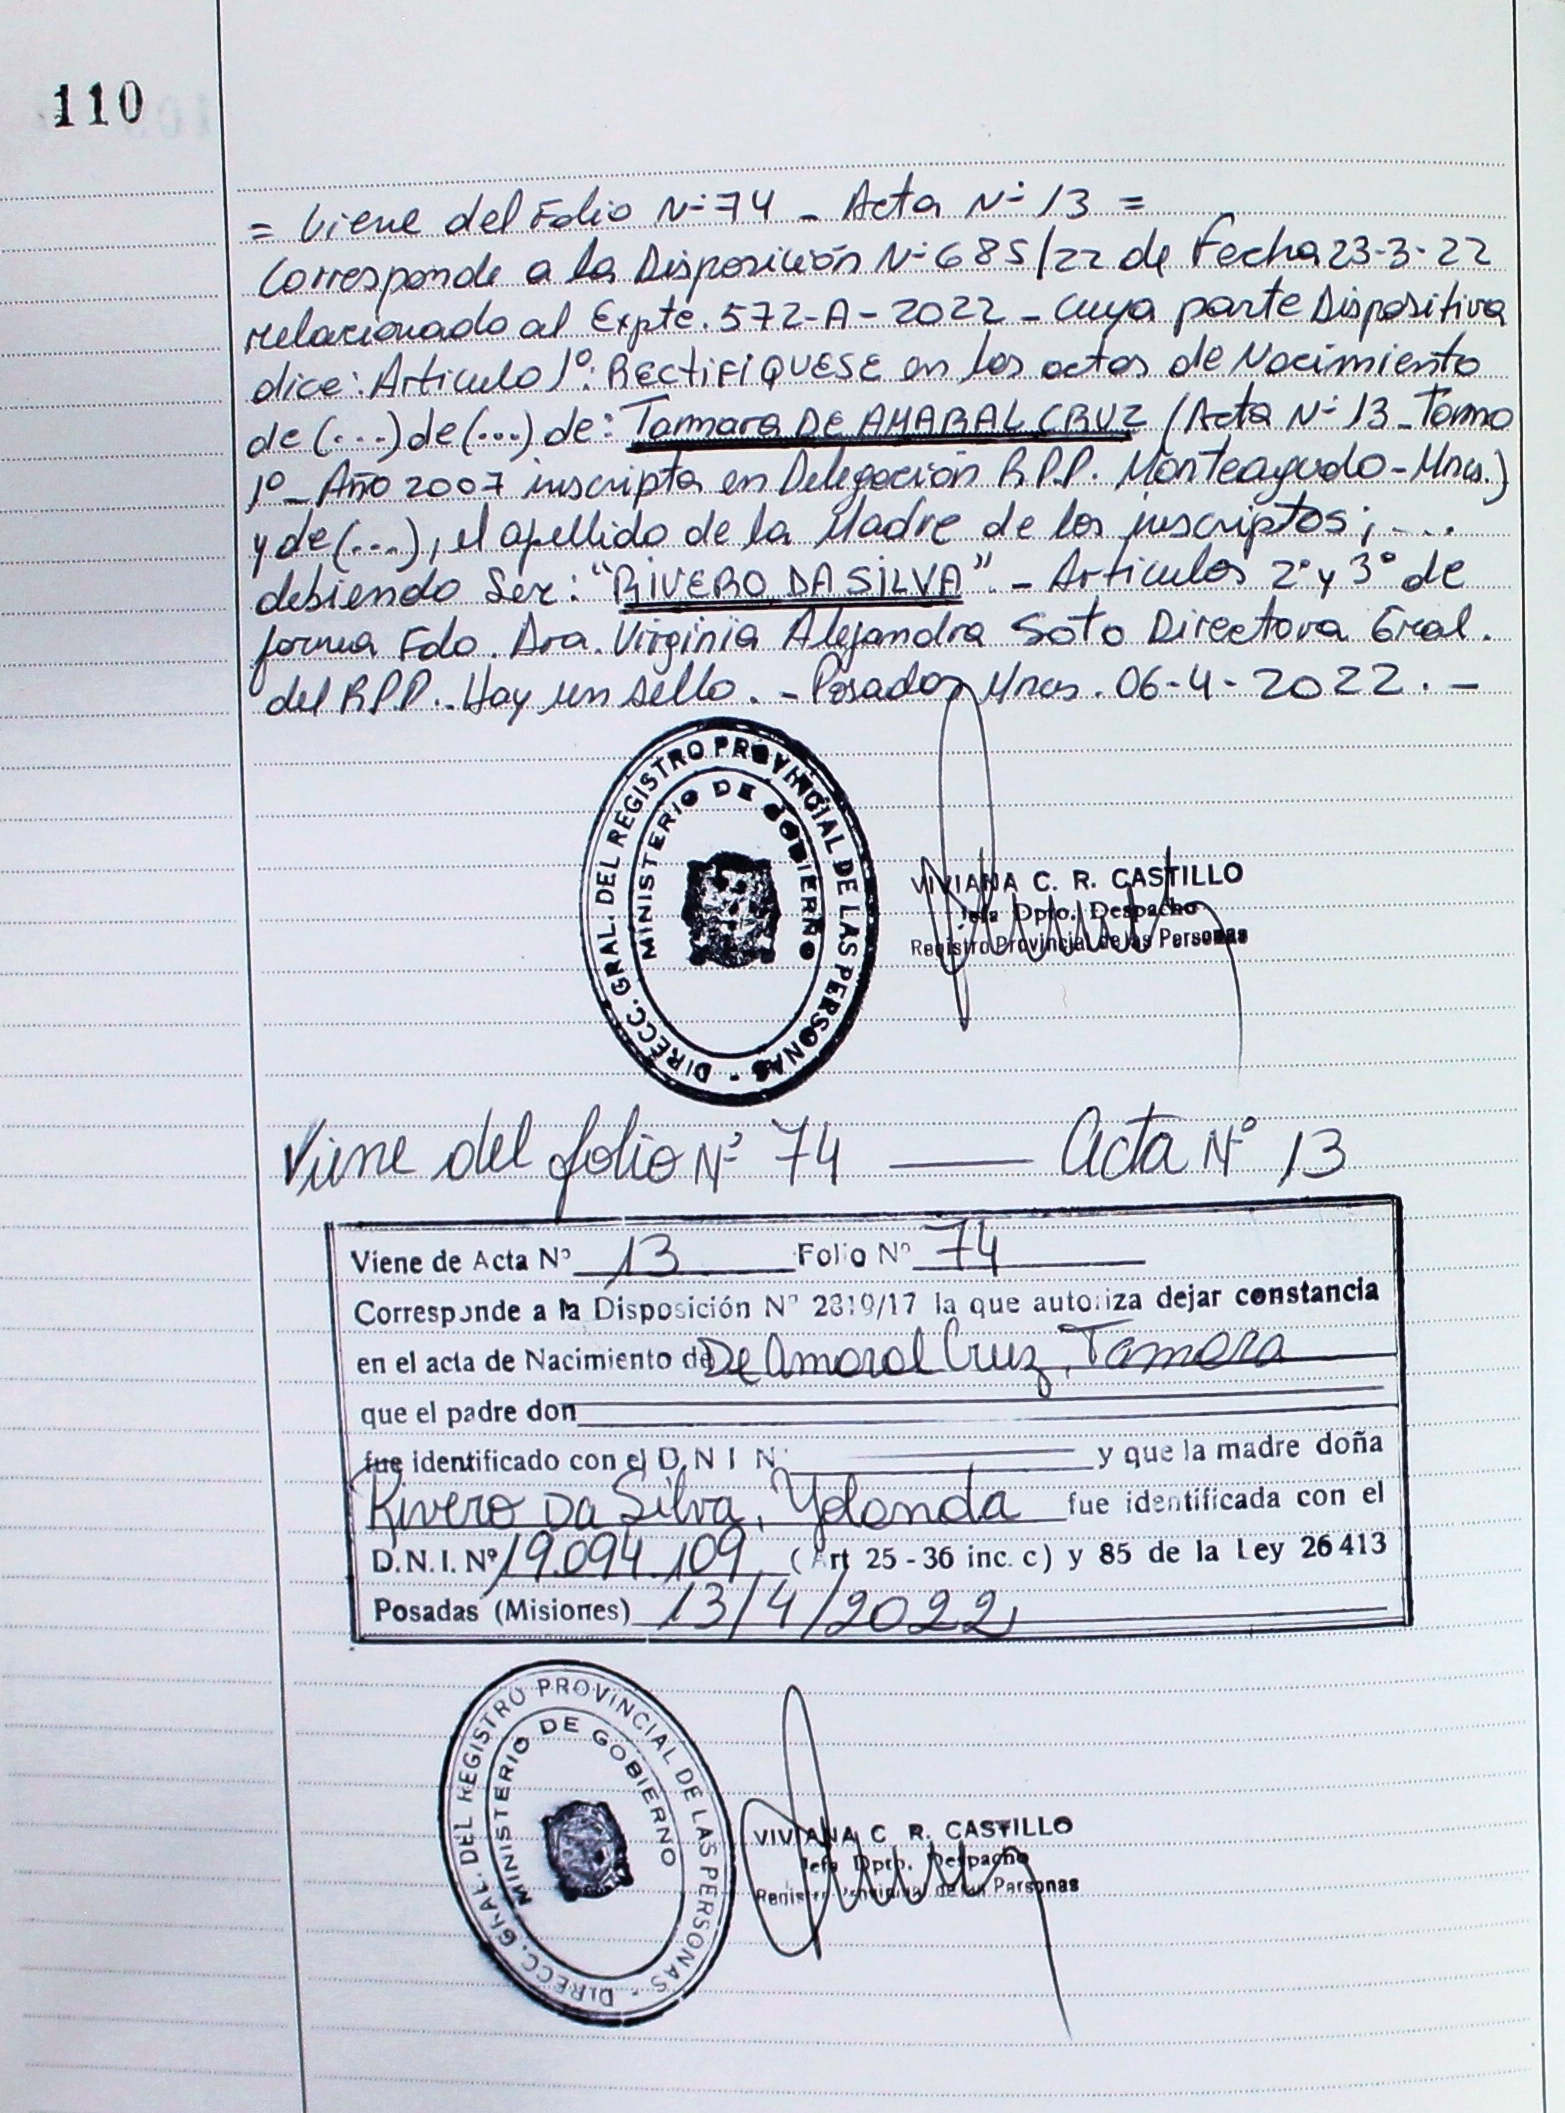 110
= Viene del Folio Nº 74 - Acta Nº 13 =
Corresponde a la Disposición Nº 685/22 de Fecha 23-3-22
relacionado al Expte. 572-A-2022 - Cuya parte Dispositiva
dice: Articulo 1º: RECTIFIQUESE en los actas de Nacimiento
de (...) de (...) de: Tamara DE AMARAL CRUZ (Acta Nº 13 - Tomo
1º - Año 2007 inscripta en Delegación R.P.P. Monteagudo - Mnes.)
y de (...), el apellido de la Madre de los inscriptos; ...
debiendo Ser: "RIVERO DA SILVA". - Articulos 2º y 3º de
forma Fdo. Dra. Virginia Alejandra Soto Directora Gral.
del R.P.P. - Hay un sello. - Posadas, Mnes. 06-4-2022. -
DIRECC. GRAL. DEL REGISTRO PROVINCIAL DE LAS PERSONAS -
MINISTERIO DE GOBIERNO
VIVIANA C. R. CASTILLO
Jefa Dpto. Despacho
Registro Provincial de las Personas
Viene del folio Nº 74 — Acta Nº 13
Viene de Acta Nº 13 Folio Nº 74
Corresponde a la Disposición Nº 2819/17 la que autoriza dejar constancia
en el acta de Nacimiento de De Amaral Cruz, Tamara
que el padre don
fue identificado con el D.N.I Nº y que la madre doña
Rivero Da Silva, Yolanda fue identificada con el
D.N.I. Nº 19.094.109 (Art 25 - 36 inc. c) y 85 de la Ley 26413
Posadas (Misiones) 13/4/2022
DIRECC. GRAL. DEL REGISTRO PROVINCIAL DE LAS PERSONAS -
MINISTERIO DE GOBIERNO
VIVIANA C R. CASTILLO
Jefa Dpto. Despacho
Registro Provincial de las Personas